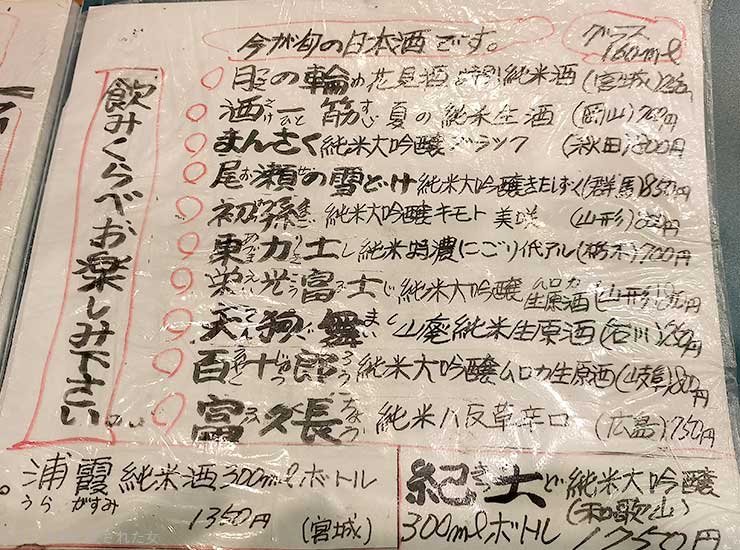 今が旬の日本酒です。
グラス
160ml
飲みくらべお楽しみ下さい
の輪 花見酒 特別純米酒 (宮城)
酒一筋 夏の純米生酒 (岡山)
まんさく 純米大吟醸 ブラック (秋田)
尾瀬の雪どけ 純米大吟醸 (群馬) 850円
初孫 純米大吟醸 キモト 美咲 (山形)
東力士 純米 にごり (栃木) 700円
栄光富士 純米大吟醸 ムロカ生原酒 (山形)
天狗舞 山廃純米生原酒 (石川)
百十郎 純米大吟醸ムロカ生原酒 (岐阜)
富久長 純米八反草辛口 (広島) 750円
浦霞 純米酒 300mlボトル
うら がすみ
1350円 (宮城)
紀土 純米大吟醸
(和歌山)
300mlボトル
された女